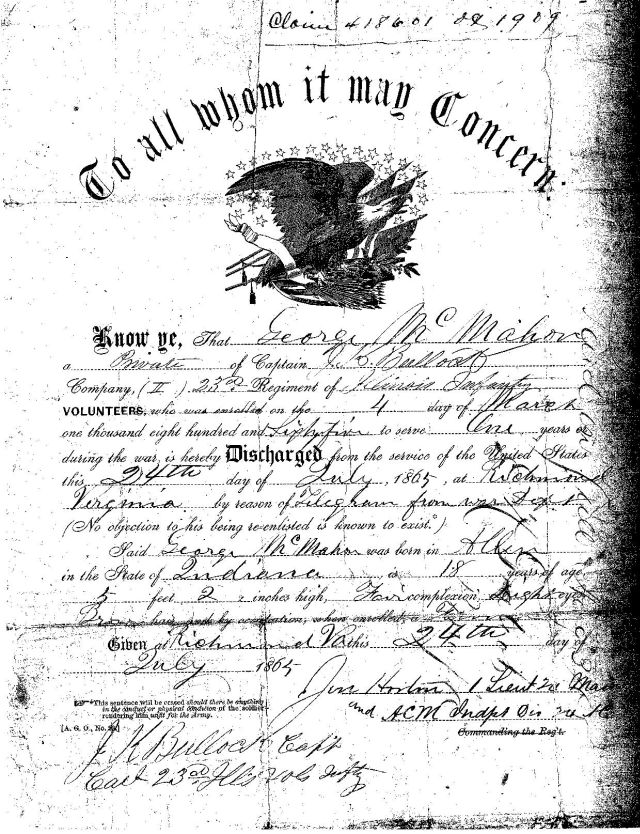 Claim 418601 1909
To all whom it may Concern.
Know ye, That George McMahon
a Private of Captain J K Bullock
Company, ( ) 23rd Regiment of Illinois Infantry
VOLUNTEERS, who was enrolled on the 4 day of March
one thousand eight hundred and Sixty five to serve One years or
during the war, is hereby Discharged from the service of the United States
this 24th day of July, 1865, at Richmond
Virginia by reason of Telegram from War Dept
(No objection to his being re-enlisted is known to exist.*)
Said George McMahon was born in Allen
in the State of Indiana is 18 years of age,
5 feet 2 inches high, Fair complexion, eyes,
hair, and by occupation, when enrolled, a
Given at Richmond Va this 24th day of
July 1865
1 Lieut
and ACM Indpt Div
*This sentence will be erased should there be anything
in the conduct or physical condition of the soldier
rendering him unfit for the Army.
[A. G. O., No. ]
Commanding the Reg't.
J K Bullock Capt
Capt 23rd Ills Vols Infty